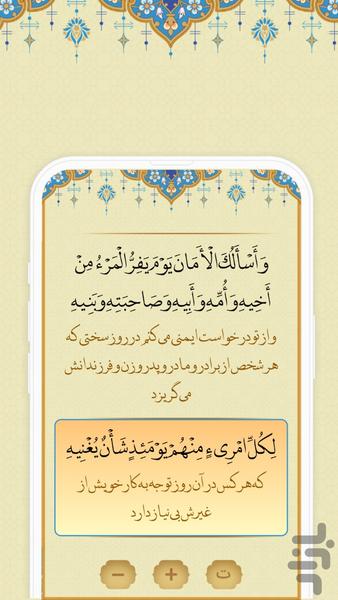 وَأَسْأَلُكَ الْأَمَانَ يَوْمَ يَفِرُّ الْمَرْءُ مِنْ
أَخِيهِ وَأُمِّهِ وَأَبِيهِ وَصَاحِبَتِهِ وَبَنِيهِ
و از تو درخواست ایمنی می‌کنم در روز سختی که
هر شخص از برادر و مادر و پدر و زن و فرزندانش
می گریزد
لِكُلِّ امْرِىءٍ مِنْهُمْ يَوْمَئِذٍ شَأْنٌ يُغْنِيهِ
که هر کس در آن روز توجه به کار خویش از
غیرش بی نیاز دارد
− + ت
بازار